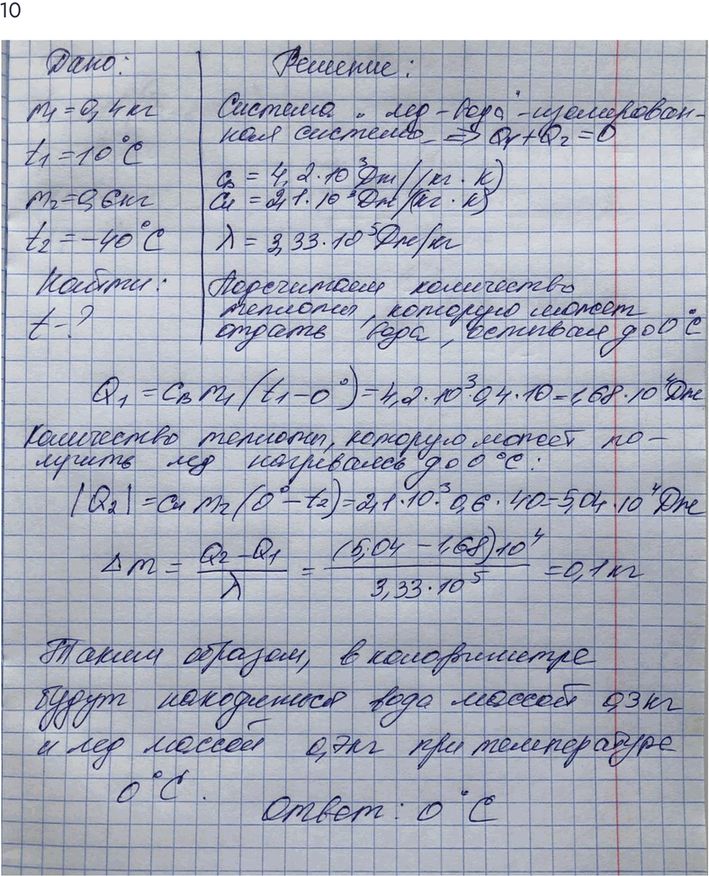 10
Дано:
Решение:
m1 = 0,4 кг
Система "лед-вода" - изолирован-
ная система => Q1 + Q2 = 0
t1 = 10°C
cв = 4,2·10³ Дж/(кг·К)
m2 = 0,6 кг
cл = 2,1·10³ Дж/(кг·К)
t2 = -40°C
λ = 3,33·10⁵ Дж/кг
Найти:
Подсчитаем количество
теплоты, которую может
t - ?
отдать вода, остывая до 0°C
Q1 = cв m1 (t1 - 0°) = 4,2·10³·0,4·10 = 1,68·10⁴ Дж
Количество теплоты, которую может по-
лучить лед нагреваясь до 0°C:
|Q2| = cл m2 (0° - t2) = 2,1·10³·0,6·40 = 5,04·10⁴ Дж
Δm = (Q2 - Q1)/λ = (5,04 - 1,68)10⁴/3,33·10⁵ = 0,1 кг
Таким образом, в калориметре
будут находиться вода массой 0,3 кг
и лед массой 0,7 кг при температуре
0°C.
Ответ: 0°C